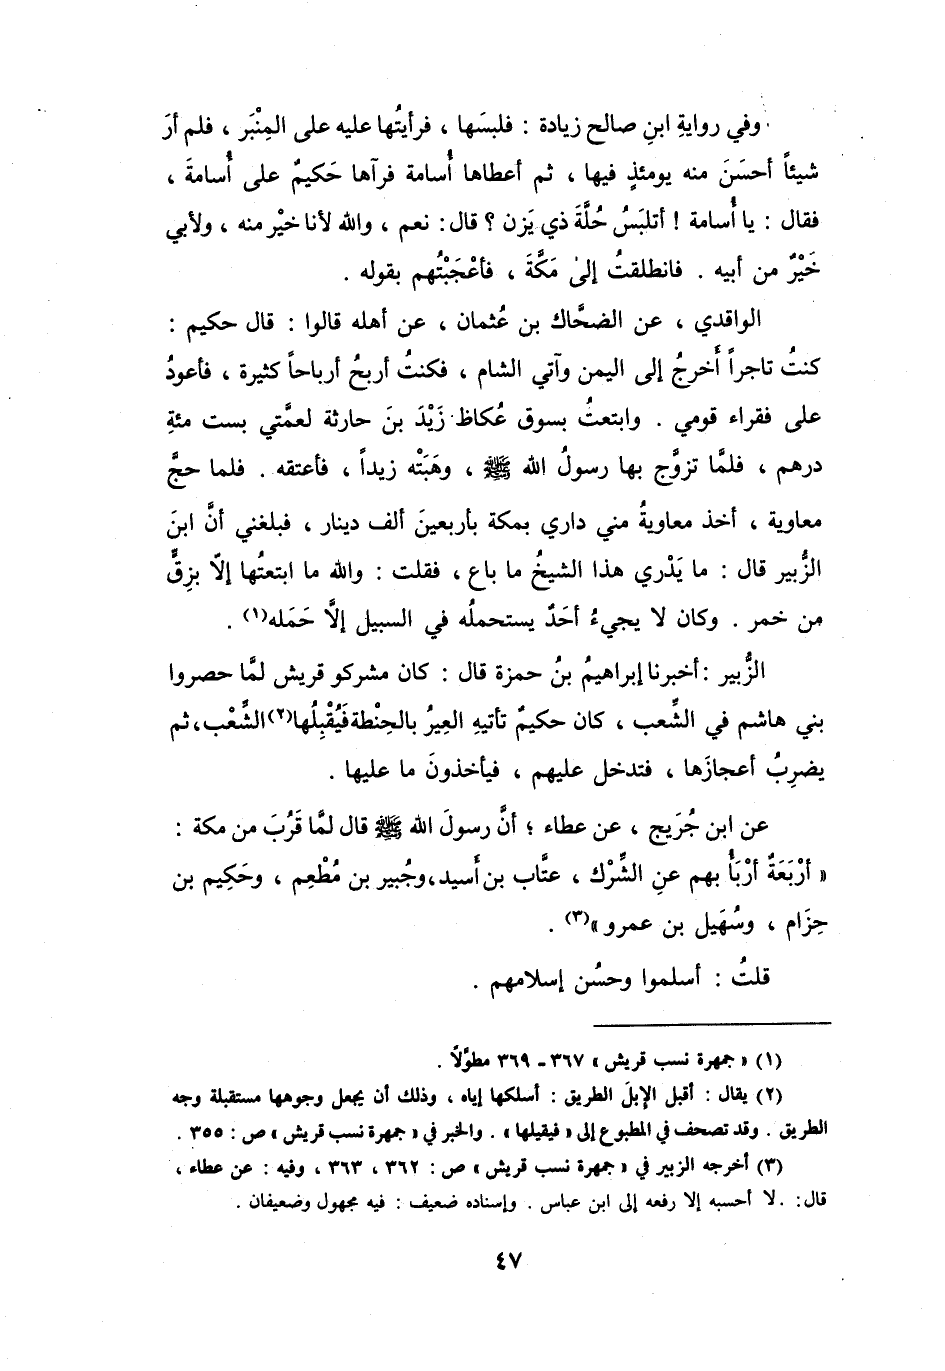 وفي روايةِ ابنِ صالح زيادة : فلبسَها ، فرأيتُها عليه على المِنْبَر ، فلم أرَ
شيئاً أحسَنَ منه يومئذٍ فيها ، ثم أعطاها أُسامة فرآها حَكيمٌ على أُسامةَ ،
فقال : يا أُسامة ! أتلبَسُ حُلَّةَ ذي يَزن ؟ قال : نعم ، والله لأنا خيْر منه ، ولأبي
خَيْرٌ من أبيه . فانطلقتُ إلىٰ مَكَّةَ ، فأعْجَبْتُهم بقوله .
الواقدي ، عن الضحَّاك بن عُثمان ، عن أهله قالوا : قال حكيم :
كنتُ تاجراً أَخرجُ إلى اليمن وآتي الشام ، فكنتُ أربحُ أرباحاً كثيرة ، فأعودُ
على فقراء قومي . وابتعتُ بسوق عُكاظ زَيْدَ بنَ حارثة لعمَّتي بست مئةِ
درهم ، فلمَّا تزوَّج بها رسولُ الله ﷺ ، وهَبَتْه زيداً ، فأعتقه . فلما حجَّ
معاوية ، أخذ معاويةُ مني داري بمكة بأربعينَ ألف دينار ، فبلغني أنَّ ابنَ
الزُّبير قال : ما يَدْري هذا الشيخُ ما باع ، فقلت : والله ما ابتعتُها إلاّ بزِقٍّ
من خمر . وكان لا يجيءُ أحَدٌ يستحملُه في السبيل إلَّا حَمَله(١) .
الزُّبير : أخبرنا إبراهيمُ بنُ حمزة قال : كان مشركو قريش لمَّا حصروا
بني هاشم في الشِّعب ، كان حكيمٌ تأتيهِ العِيرُ بالحِنْطة فَيُقْبِلُها(٢) الشِّعْب ، ثم
يضرِبُ أعجازَها ، فتدخل عليهم ، فيأخذونَ ما عليها .
عن ابن جُرَيج ، عن عطاء ؛ أنَّ رسولَ الله ﷺ قال لمَّا قَرُبَ من مكة :
« أرْبَعَةٌ أرْبَأُ بهم عنِ الشِّرْك ، عتَّاب بن أَسيد ، وجُبير بن مُطْعِم ، وحَكِيم بن
حِزَام ، وسُهَيل بن عمرو »(٣) .
قلتُ : أسلموا وحسُن إسلامهم .
(١) « جمهرة نسب قريش » ٣٦٧ ـ ٣٦٩ مطوَّلاً .
(٢) يقال : أقبل الإبلَ الطريق : أسلكها إياه ، وذلك أن يجعل وجوهها مستقبلة وجه
الطريق . وقد تصحف في المطبوع إلى « فيقيلها » . والخبر في « جمهرة نسب قريش » ص : ٣٥٥ .
(٣) أخرجه الزبير في « جمهرة نسب قريش » ص : ٣٦٢ ، ٣٦٣ ، وفيه : عن عطاء ،
قال : لا أحسبه إلا رفعه إلى ابن عباس . وإسناده ضعيف : فيه مجهول وضعيفان .
٤٧